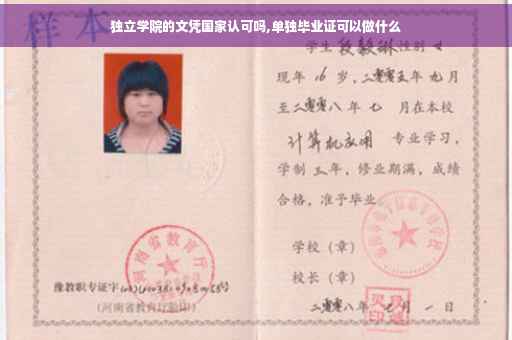 独立学院的文凭国家认可吗,单独毕业证可以做什么
样本
学生 段毅琳 性别 女
现年 16 岁,二零零五年 九月
至二零零八年 七 月在本校
计算机应用 专业学习,
学制 三 年,修业期满,成绩
合格,准予毕业
学校(章)
校长(章)
豫教职专证字
(河南省教育厅验印)
二零零八年 七 月 一 日
河南省教育厅